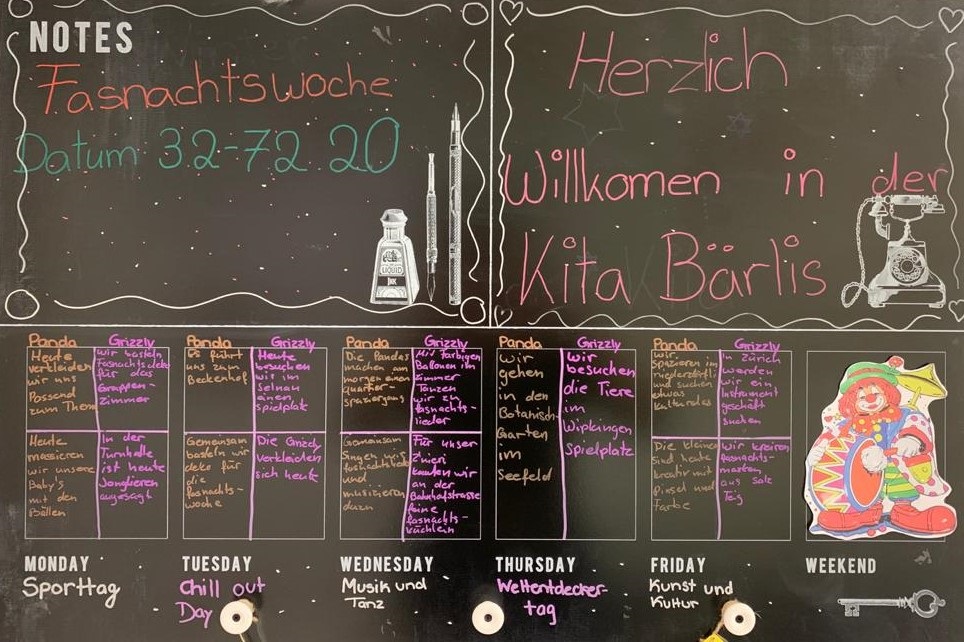 NOTES
Fasnachtswoche
Datum 3.2-7.2.20
LIQUID
INK
Herzlich
Willkomen in der
Kita Bärlis
Panda
Heute
verkleiden
wir uns
Passend
zum Thema
Grizzly
wir basteln
Fasnachtsdeko
für das
Gruppen-
zimmer
Heute
massieren
wir unsere
Baby's
mit den
Bällen
In der
Turnhalle
ist heute
Jonglieren
angesagt
MONDAY
Sporttag
Panda
Es führt
uns zum
Beckenhof
Grizzly
Heute
besuchen
wir im
Selnau
einen
spielplatz
Gemeinsam
basteln wir
deko für
die
fasnachts-
woche
Die Grizzly
Verkleiden
sich heute
TUESDAY
Chill out
Day
Panda
Die Pandas
machen am
morgen einen
quartier
spaziergang
Grizzly
Mit farbigen
Ballonen im
zimmer
Tanzen
wir zu
fasnachts-
lieder
Gemeinsam
Singen wir
fasnachtslieder
und
musizieren
dazu
Für unser
Zvieri
kaufen wir
an der
Bahnhofstrasse
feine
fasnachts-
küchlein
WEDNESDAY
Musik und
Tanz
Panda
wir
gehen
in den
Botanisch
Garten
im
Seefeld
Grizzly
wir
besuchen
die Tiere
im
Wipkingen
Spielplatz
THURSDAY
Weltentdecker-
tag
Panda
wir
Spazieren im
niederdorfli
und suchen
etwas
Kulturelles
Grizzly
in Zürich
werden
wir ein
Instrument
geschäft
suchen
Die kleinen
sind heute
kreativ mit
Pinsel und
Farbe
wir kreiren
fasnachts-
masken
aus Salz
Teig
FRIDAY
Kunst und
Kultur
WEEKEND